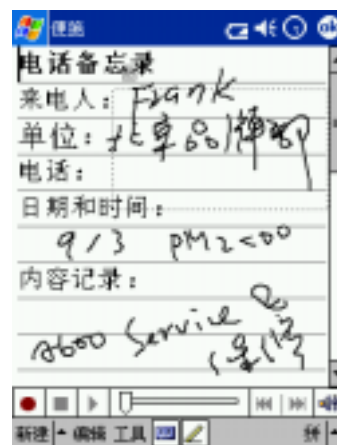 便笺
电话备忘录
来电人：Frank
单位：
电话：
日期和时间：
9/3 PM2:00
内容记录：
A600 Service
新建 编辑 工具 拼